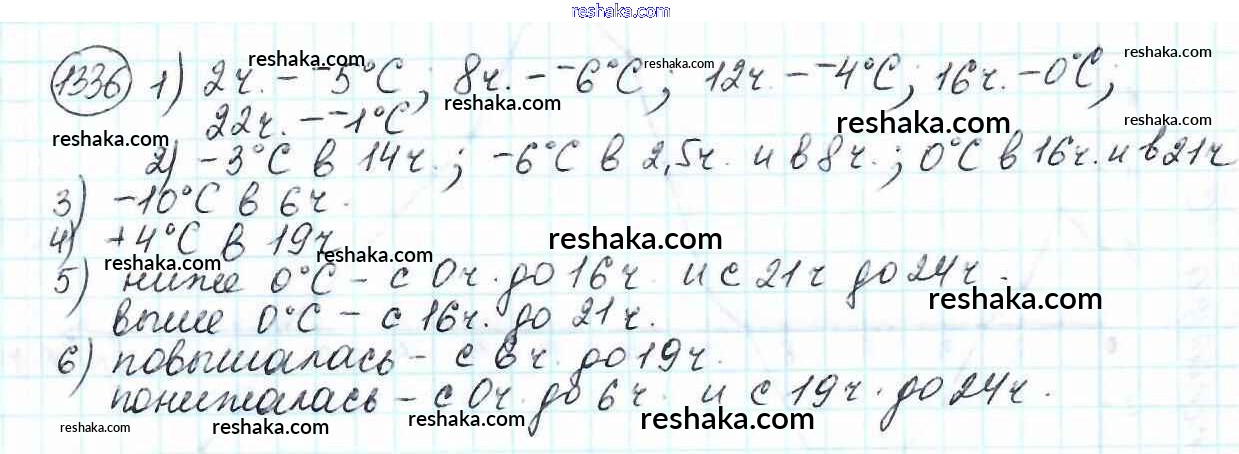 reshaka.ru
1336 1) 2ч. – ⁻5°C; 8ч. – ⁻6°C; 12ч – ⁻4°C; 16ч. – 0°C;
22ч. – ⁻1°C
2) –3°C в 14ч.; –6°C в 2,5ч. и в 8ч.; 0°C в 16ч. и в 21ч
3) –10°C в 6ч.
4) +4°C в 19ч
5) ниже 0°C – с 0ч. до 16ч и с 21ч до 24ч.
выше 0°C – с 16ч. до 21ч.
6) повышалась – с 6ч. до 19ч.
понижалась – с 0ч. до 6ч. и с 19ч. до 24ч.
reshaka.com
reshaka.com
reshaka.com
reshaka.com
reshaka.com
reshaka.com
reshaka.com
reshaka.com
reshaka.com
reshaka.com
reshaka.com
reshaka.com
reshaka.com